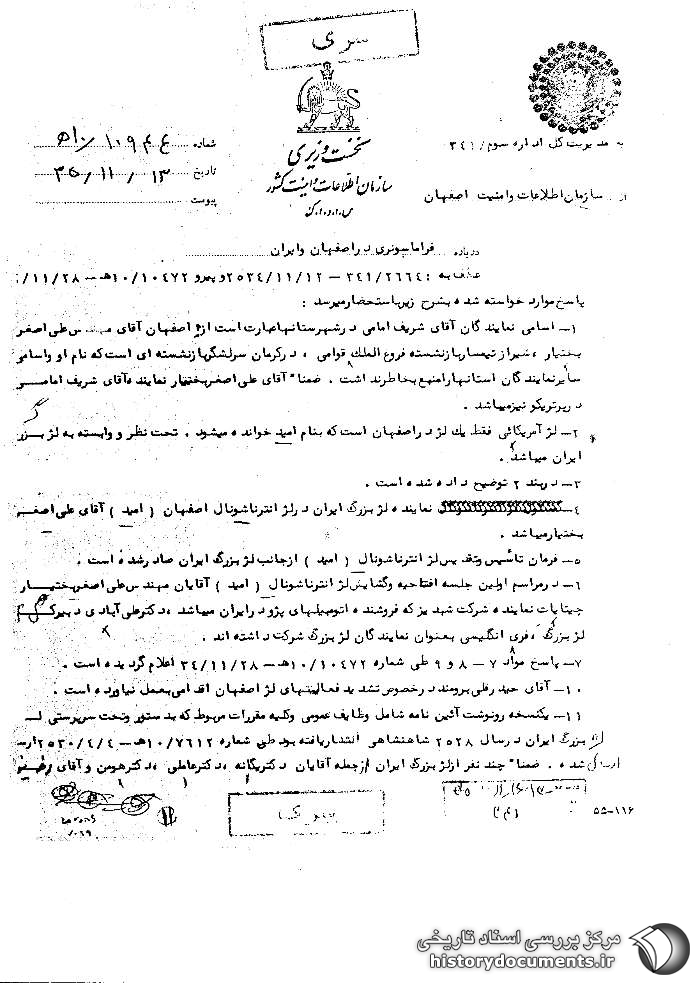 سری
نخست وزیری
سازمان اطلاعات و امنیت کشور
س.ا.و.ا.ک
شماره ۱۰۹۴۴/۱۰ه
تاریخ ۳۵/۱۱/۱۳
پیوست
به مدیریت کل اداره سوم/۳۴۱
از سازمان اطلاعات وامنیت اصفهان
درباره فراماسونری در اصفهان وایران
عطف به : ۳۴۱/۲۶۶۴ – ۲۵۳۴/۱۱/۱۲ وپیرو ۱۰/۱۰۴۷۲ه – ۱۱/۲۸/
پاسخ موارد خواسته شده بشرح زیر باستحضار میرسد :
۱– اسامی نمایندگان آقای شریف امامی در شهرستانها عبارت است از اصفهان آقای مهندس علی اصغر
بختیار ، شیراز تیمسار بازنشسته فروع الملک قوامی ، در کرمان سرلشگر بازنشسته ای است که نام او واسامی
سایر نمایندگان استانها را منبع بخاطر ندا شت . ضمنا" آقای علی اصغر بختیار نماینده آقای شریف امامی
در پرتریکو نیز میباشد .
۲– لژ آمریکائی فقط یك لژ در اصفهان است که بنام امید خوانده میشود . تحت نظر و وابسته به لژ بزرگ
ایران میباشد .
۳– در بند ۲ توضیح داده شده است .
۴– نماینده لژ بزرگ ایران در لژ انترناشونال اصفهان ( امید ) آقای علی اصغر
بختیار میباشد .
۵– فرمان تاسیس وتقدیس لژ انترناشونال ( امید ) از جانب لژ بزرگ ایران صادر شده است .
۶– در مراسم اولین جلسه افتتاحیه وگشایش لژ انترناشونال ( امید ) آقایان مهندس علی اصغر بختیار
جینایات نماینده شرکت شهد یز که فروشنده اتومبیلهای پژو در ایران میباشد ، دکتر علی آبادی دبیر کل
لژ بزرگ ، فری انگلیسی بعنوان نمایندگان لژ بزرگ شرکت داشته اند .
۷– پاسخ مواد ۷ – ۸ و ۹ طی شماره ۱۰/۱۰۴۷۲ه – ۳۴/۱۱/۲۸ اعلام گردیده است .
۱۰– آقای حیدر قلی برومند در خصوص تشدید فعالیتهای لژ اصفهان اقدامی بعمل نیاورده است .
۱۱– یکنسخه رونوشت آئین نامه شامل وظایف عمومی وکلیه مقررات مربوط که بدستور وتحت سرپرستی لـ
لژ بزرگ ایران در سال ۲۵۲۸ شاهنشاهی انتشار یافته بود طی شماره ۱۰/۷۶۱۲ه – ۲۵۳۰/۴/۴ ارسـ
ارسال شده . ضمنا" چند نفر از لژ بزرگ ایران از جمله آقایان دکتر یگانه ، دکتر عاملی ، دکتر هومن و آقای
سری
۵۵-۱۱۶
مرکز بررسی اسناد تاریخی
historydocuments.ir